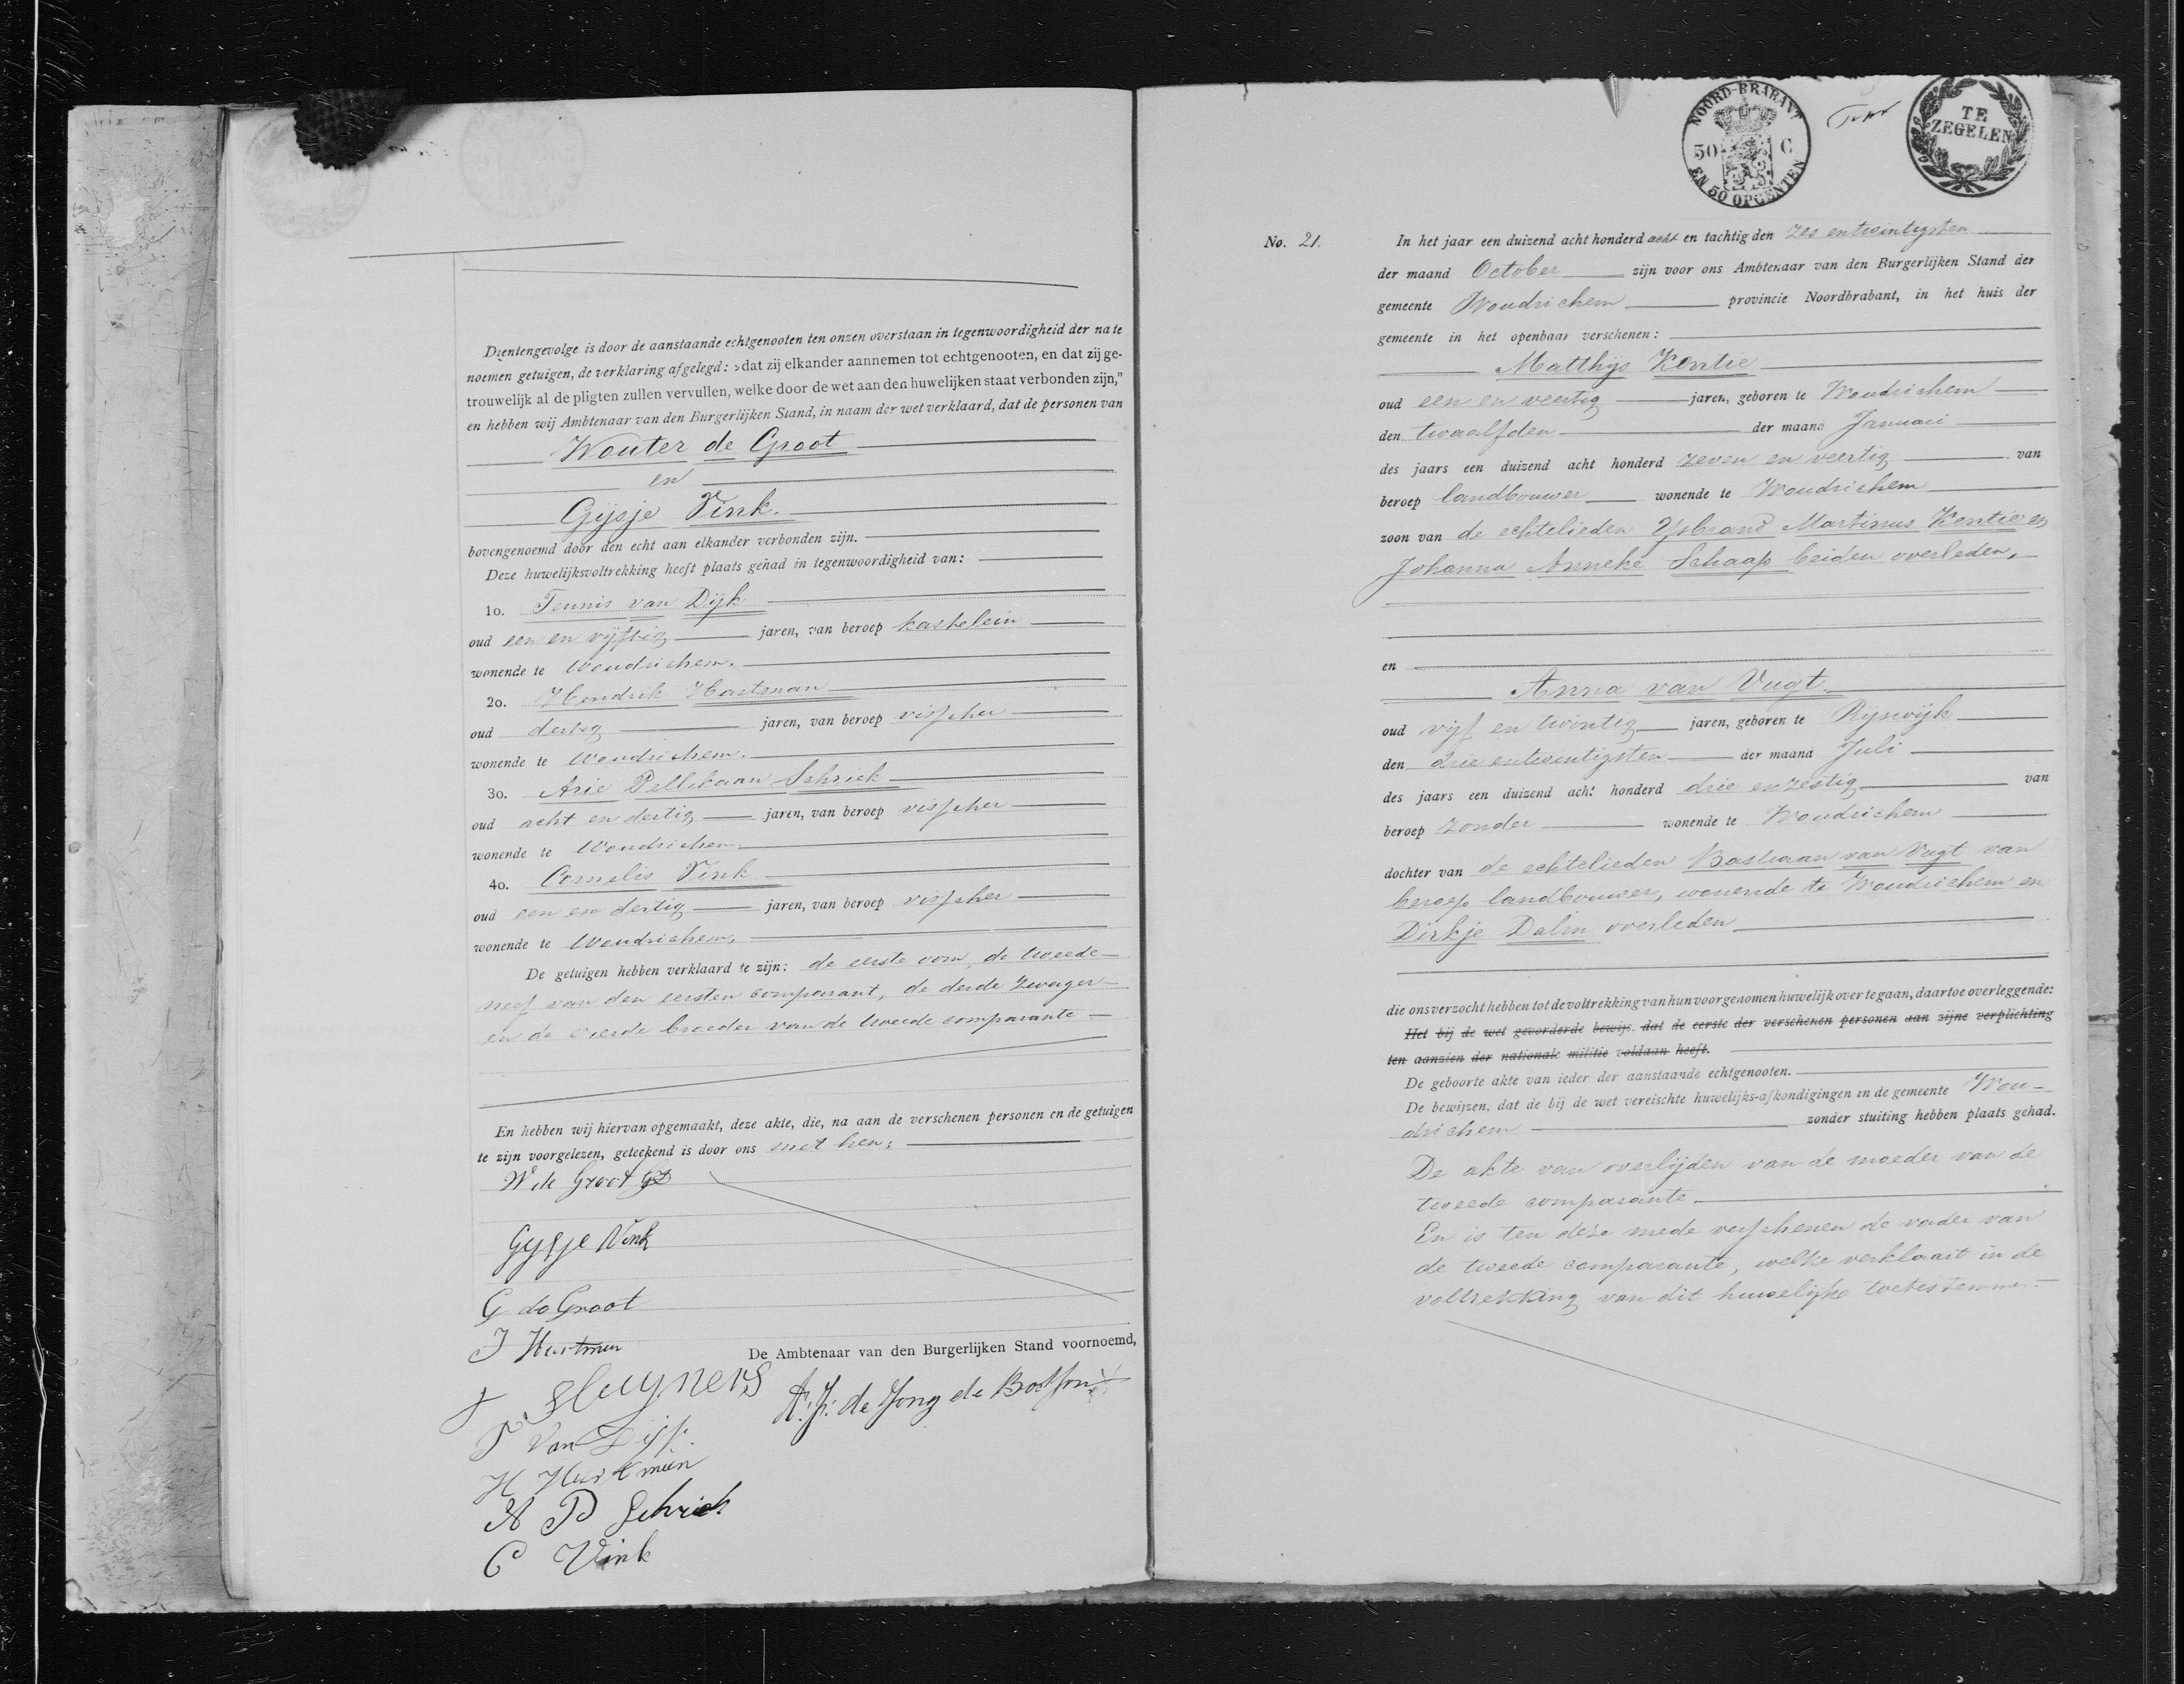 Dientengevolge is door de aanstaande echtgenooten ten onzen overstaan in tegenwoordigheid der na te
noemen getuigen, de verklaring afgelegd: »dat zij elkander aannemen tot echtgenooten, en dat zij ge-
trouwelijk al de pligten zullen vervullen, welke door de wet aan den huwelijken staat verbonden zijn,"
en hebben wij Ambtenaar van den Burgerlijken Stand, in naam der wet verklaard, dat de personen van
Wouter de Groot
en
Gijsje Vink.
bovengenoemd door den echt aan elkander verbonden zijn.
Deze huwelijksvoltrekking heeft plaats gehad in tegenwoordigheid van:
1o. Teunis van Dijk
oud een en vijftig jaren, van beroep kastelein
wonende te Woudrichem.
2o. Hendrik Hartman
oud dertig jaren, van beroep visscher
wonende te Woudrichem.
3o. Arie Pellikaan Schriek
oud acht en dertig jaren, van beroep visscher
wonende te Woudrichem
4o. Cornelis Vink
oud een en dertig jaren, van beroep visscher
wonende te Woudrichem,
De getuigen hebben verklaard te zijn: de eerste oom, de tweede
neef van den eersten comparant, de derde zwager
en de vierde broeder van de tweede comparante
En hebben wij hiervan opgemaakt, deze akte, die, na aan de verschenen personen en de getuigen
te zijn voorgelezen, geteekend is door ons met hen;
W de Groot Gz
Gijsje Vink
G de Groot
J Hartman
De Ambtenaar van den Burgerlijken Stand voornoemd,
J Sluijners
A. J. de Jong de
T Van Dijk
H Hartman
A P Schriek
C Vink
NOORD-BRABANT
50 C
EN 50 OPCENTEN
TE
ZEGELEN
No. 21.
In het jaar een duizend acht honderd acht en tachtig den zes entwintigsten
der maand October zijn voor ons Ambtenaar van den Burgerlijken Stand der
gemeente Woudrichem provincie Noordbrabant, in het huis der
gemeente in het openbaar verschenen:
Matthijs Kentie
oud een en veertig jaren, geboren te Woudrichem
den twaalfden der maand Januari
des jaars een duizend acht honderd zeven en veertig van
beroep landbouwer wonende te Woudrichem
zoon van de echtelieden IJsbrand Martinus Kentie en
Johanna Anneke Schaap beiden overleden,
en
Anna van Vugt.
oud vijf en twintig jaren, geboren te Rijswijk
den drie entwintigsten der maand Juli
des jaars een duizend acht honderd drie en zestig van
beroep zonder wonende te Woudrichem
dochter van de echtelieden Bastiaan van Vugt van
beroep landbouwer, wonende te Woudrichem en
Dirkje Dalm overleden
die ons verzocht hebben tot de voltrekking van hun voorgenomen huwelijk over te gaan, daartoe overleggende:
Het bij de wet gevorderde bewijs, dat de eerste der verschenen personen aan zijne verplichting
ten aanzien der nationale militie voldaan heeft.
De geboorte akte van ieder der aanstaande echtgenooten.
De bewijzen, dat de bij de wet vereischte huwelijks-afkondigingen in de gemeente Wou-
drichem zonder stuiting hebben plaats gehad.
De akte van overlijden van de moeder van de
tweede comparante
En is ten deze mede verschenen de vader van
de tweede comparante, welke verklaart in de
voltrekking van dit huwelijke toetestemmen